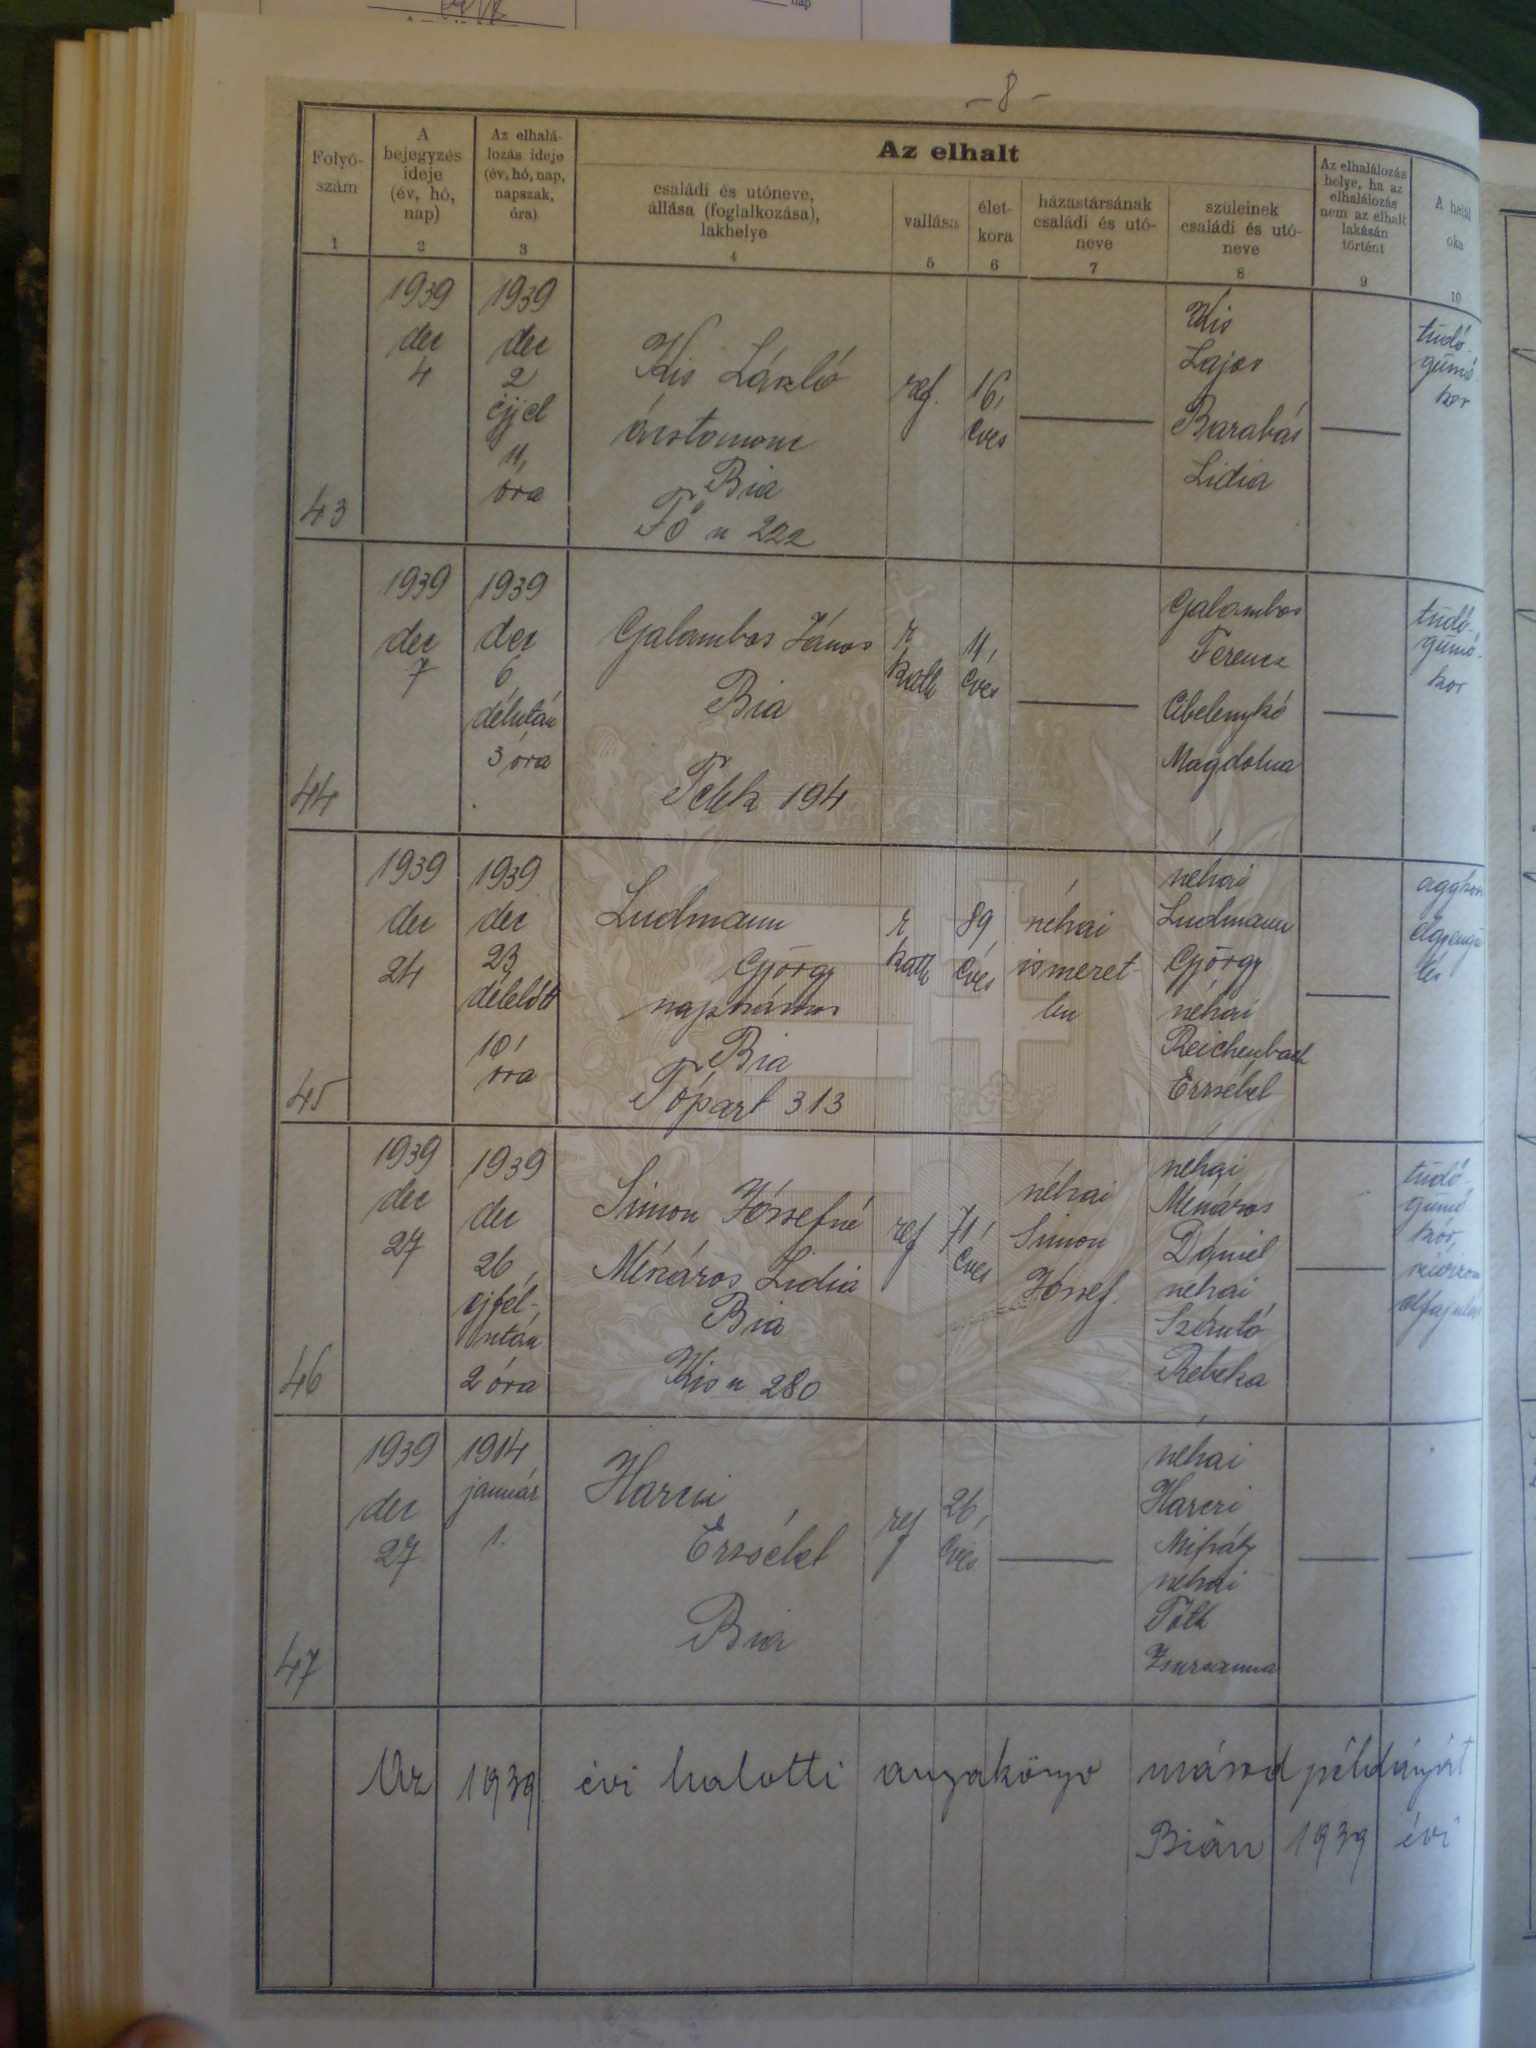 - 8 -
Folyó-
szám
1
A
bejegyzés
ideje
(év, hó,
nap)
2
Az elhalá-
lozás ideje
(év, hó, nap,
napszak,
óra)
3
Az elhalt
családi és utóneve,
állása (foglalkozása),
lakhelye
4
vallása
5
élet-
kora
6
házastársának
családi és utó-
neve
7
szüleinek
családi és utó-
neve
8
Az elhalálozás
helye, ha az
elhalálozás
nem az elhalt
lakásán
történt
9
A halál
oka
10
43
1939
dec
4
1939
dec
2
éjjel
11,
óra
Kis László
Bia
Fő u 222
ref.
16,
éves
Kis
Lajos
Barabás
Lidia
tüdő-
gümő-
kor
44
1939
dec
7
1939
dec
6
délután
3 óra
Galambos János
Bia
Telek 194
r
kath
11,
éves
Galambos
Ferencz
Magdolna
tüdő-
gümő-
kor
45
1939
dec
24
1939
dec
23
délelőtt
10
óra
Ludmann
György
napszámos
Bia
Tópart 313
r
kath
89
éves
néhai
ismeret-
len
néhai
Ludmann
György
néhai
Reichenbach
Erzsébet
aggkori
elgyengü
lés
46
1939
dec
27
1939
dec
26,
éjfél-
után
2 óra
Simon Józsefné
Mészáros Lidia
Bia
Kis u 280
ref
71
éves
néhai
Simon
József.
néhai
Mészáros
Dániel
néhai
Szántó
Rebeka
tüdő-
gümő-
kór,
47
1939
dec
27
1914
január
1.
Harczi
Erzsébet
Bia
ref
26,
éves
néhai
Harczi
Mihály
néhai
Tóth
Zsuzsanna
Az 1939 évi halotti anyakönyv másod példányát
Bián 1939 évi